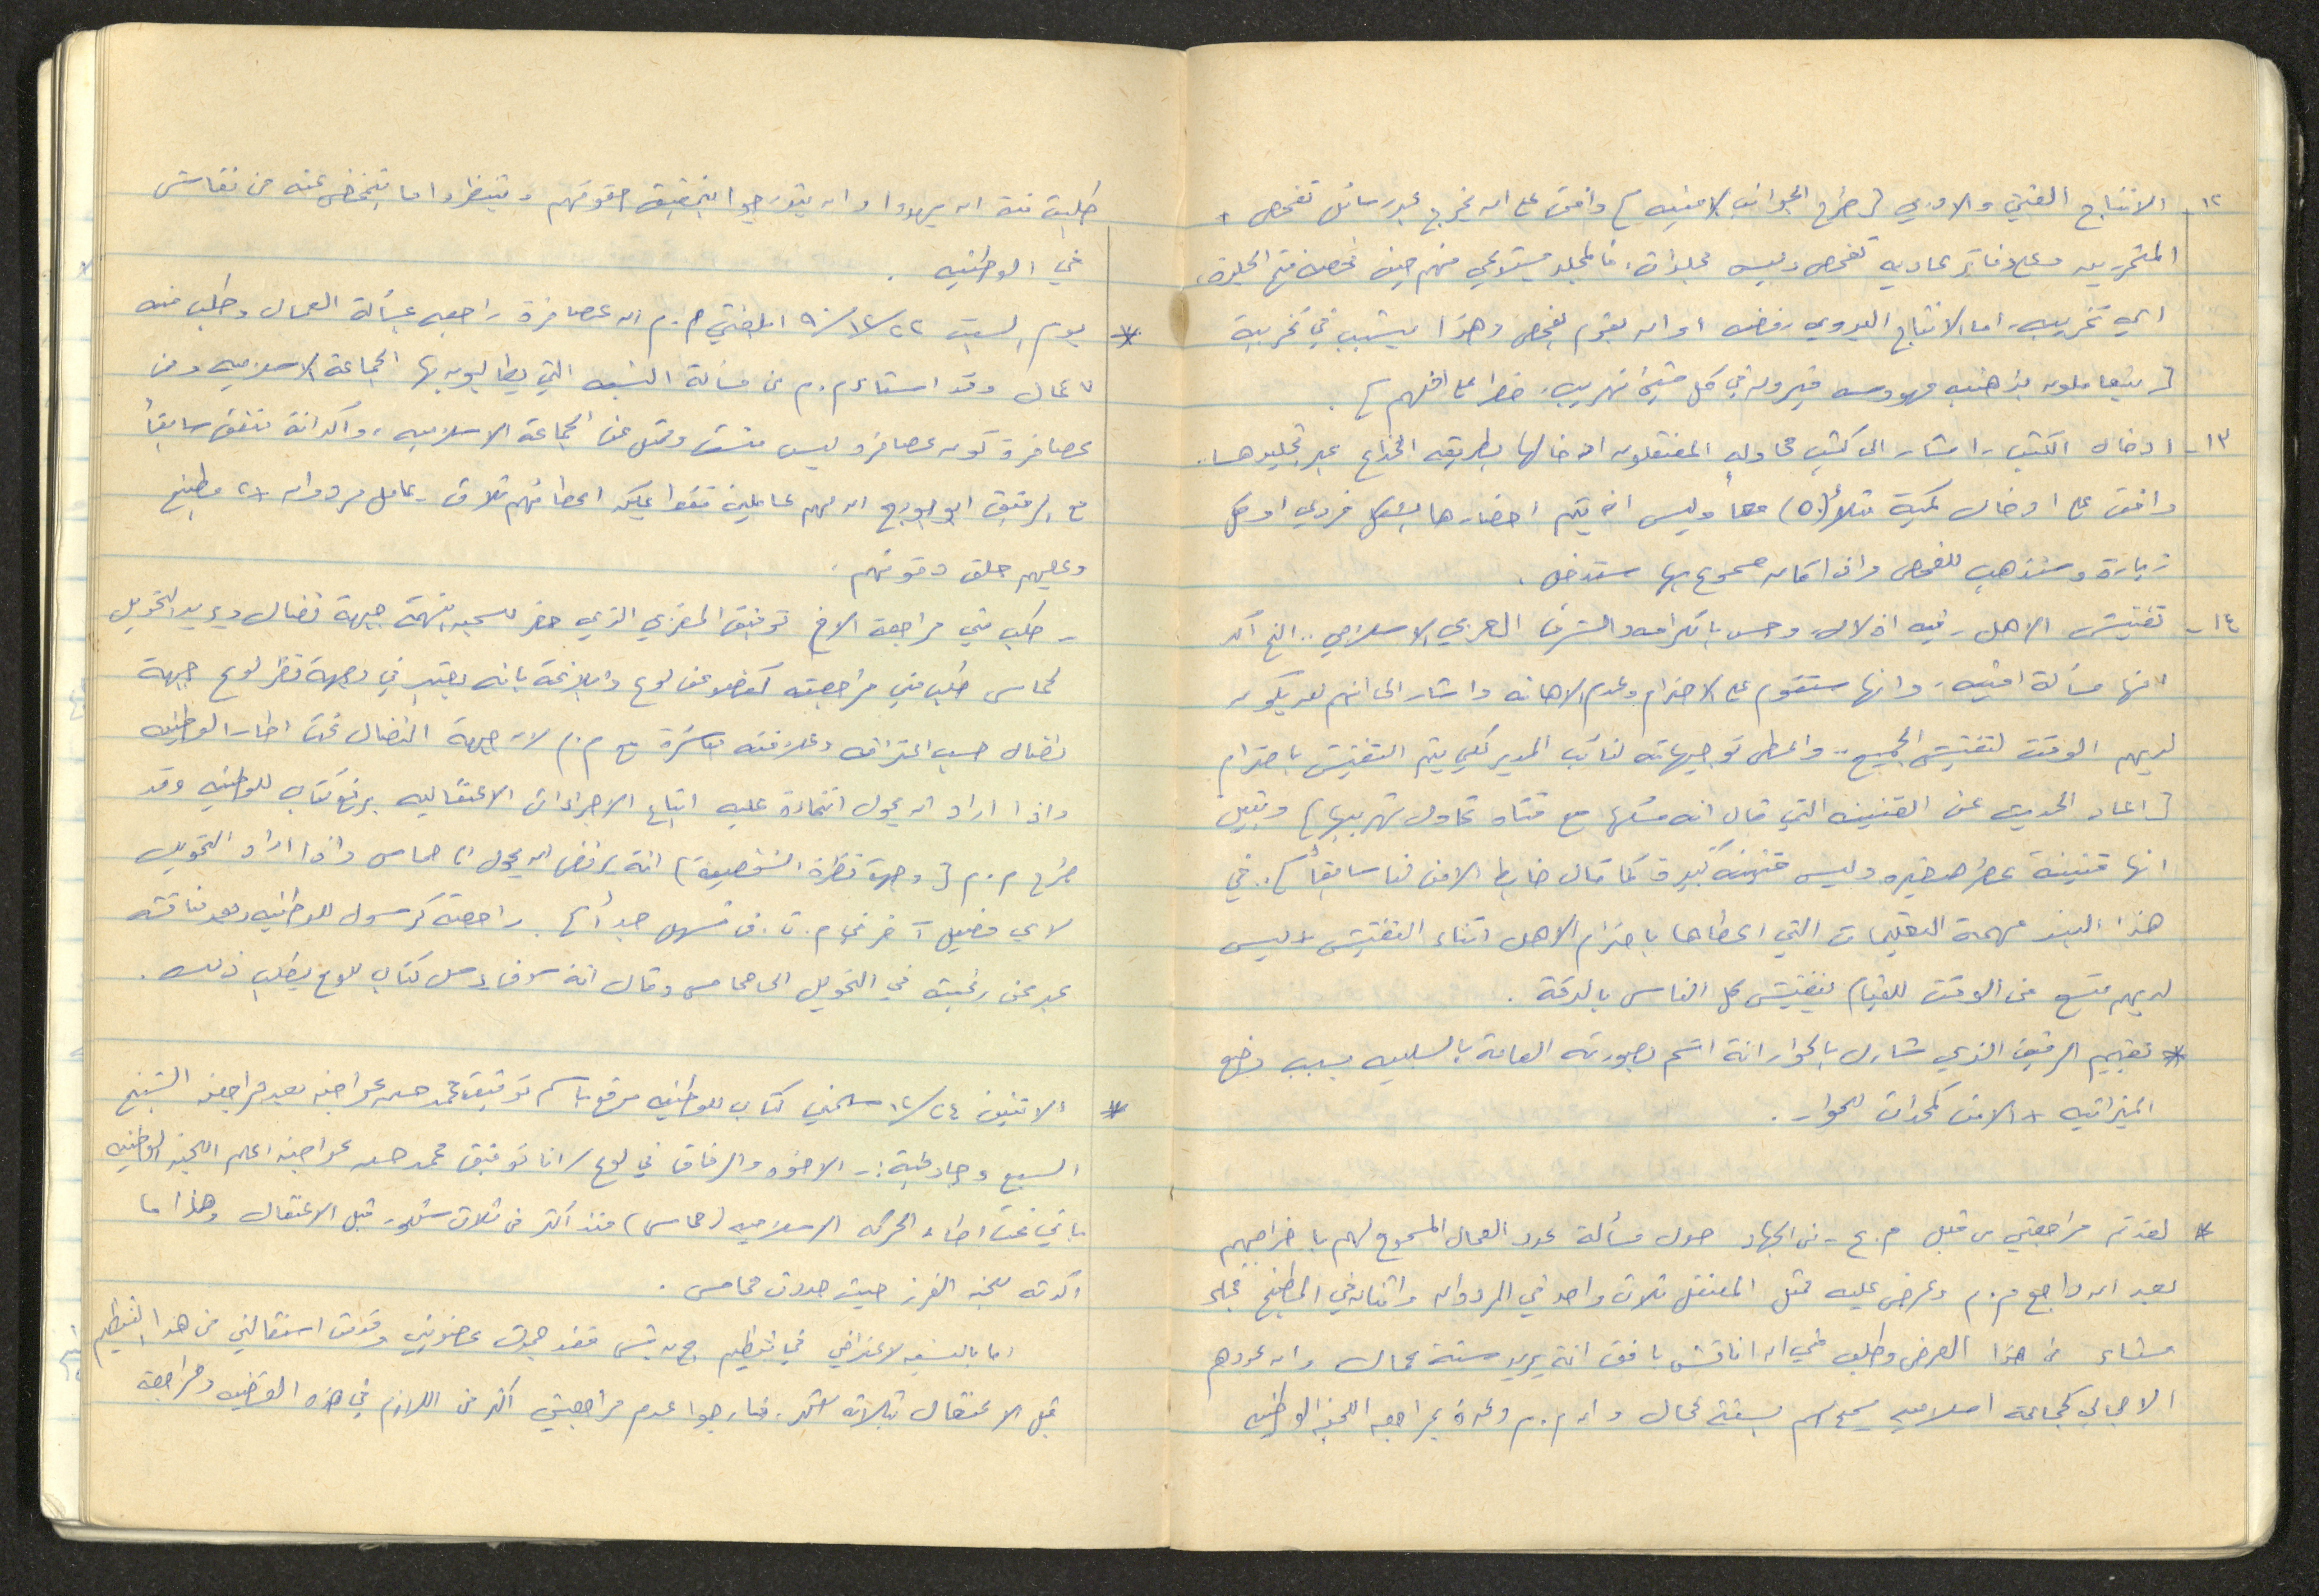 ١٢- الانتاج الفني والادبي [طرح الجوانب الامنيه] وافق على ان تخرج عبر رسائل تفحص +
المتحررين وعلى دفاتر عاديه تفحص وليس مجلدات، فالمجلد يستدعي منهم حين فحصه فتح الجلدة،
اي تخريبه، اما الانتاج اليدوي رفضه او ان يقوم بفحص وهذا يتسبب في تخريبه
[يتعاملون بذهنيه مهووسه فيرون في كل شيئ تهريب، خطرا على امنهم].
١٣- ادخال الكتب، اشار الى كتب محاوله المعتقلون ادخالها بطريقه الخداع عبر تجليدها.
وافق على ادخال كمية مثلاً (٥٠) معاً وليس ان يتم احضارها بشكل فردي او كل
زيارة وستذهب للفحص واذا كان مسموح بها ستدخل.
١٤- تفتيش الاهل، فيه اذلال ومس بالكرامه والشرف العربي الاسلامي.. الخ اكد
انها مسألة امنيه، وانها ستقوم على الاحترام وعدم الاهانه واشار الى انهم لن يكون
لديهم الوقت لتفتيش الجميع.. واعطى توجيهاته لنائب المدير لكي يتم التفتيش باحترام
[اعاد الحديث عن القنينه التي قال انه مسكها مع فتاه تحاول تهريبها] وتبين
انها قنينة عطر صغيره وليس قنينه كبيرة كما قال ضابط الامن لنا سابقاً].. في
هذا البند مهمة التعليمات التي اعطاها باحترام الاهل اثناء التفتيش + ليس
لديهم متسع من الوقت للقيام بتفتيش كل الناس بالدقة.
* تقييم الرفيق الذي شارك بالحوار انة اتسم بصورته العامة بالسلبيه بسبب وضع
الميزانيه + الامن كمحددات للحوار.
* لقد تم مراجعتي من قبل م.ع - من الجهاد حول مسألة عدد العمال المسموح لهم باخراجهم
بعد ان راجع م.م وعرض عليه ممثل المعتقل ثلاث واحد في المردوان واثنان في المطبخ فجاء
مستاء من هذا العرض وطلب مني ان اناقش بافق انة يريد ستة عمال وان عددهم
الاجمالي كجماعة اسلاميه يسمح لهم بستة عمال وان م.م وعدة بمراجعه اللجنه الوطنيه
طلبت منه ان يهدوا وان يتوجهوا لتحقيق حقوقهم وينتظروا ما يتمخض عنه من نقاش
في الوطنيه.
* يوم السبت ٩٠/١٢/٢٢ ابلغني م.م ان عصافرة راجعه بمسألة العمال وطلب منه
٧ عمال وقد استاء م.م من مسألة النسبه التي يطالبون بها الجماعة الاسلاميه ومن
عصافرة كون عصافرة ليس ممثل عن الجماعة الاسلاميه، واكد انة متفق سابقاً
مع الرفيق ان لهم عاملين اعطائهم ثلاث - عامل مردوان + ٢ مطبخ
وعليهم حلق دقونهم.
- طلب مني مراجعة الاخ توفيق المغربي الذي حضر للسجن بتهمة جبهة نضال ويريد التحويل
لحماس طلب مني مراجعته كعضو عن ل.و.ع وابلاغة بانه يعتبر في وجهة نظر ل.و.ع جبهة
نضال حسب اعترافه وعلاقته مباشرة مع م.م لان جبهة النضال تحت اطار الوطنيه
واذا اراد ان يحول انتماءة عليه اتباع الاجراءات الاعتقاليه برفع كتاب للوطنيه وقد
طرح م.م [وجهة نظرة الشخصية] انة يرفض ان يحول الى حماس واذا اراد التحويل
لاي فصيل آخر في م.ت.ف تسهل جداً]. راجعته كرسول للوطنيه وبعد مناقشه
عبر عن رغبته في التحويل الى حماس وقال انة سوف يرسل كتاب ل.و.ع يطلب ذلك.
* الاثنين ١٢/٢٤ سلمني كتاب للوطنيه موقع باسم توفيق محمد حسن عواجنه بعد مراجعه الشيخ
السبع وجاء فية:- الاخوه والرفاق في ل.و.ع / انا توفيق محمد حسن عواجنه اعلم اللجنه الوطنيه
باني تحت اطار الحركه الاسلاميه (حماس) منذ اكثر من ثلاث شهور قبل الاعتقال وهذا ما
اكدته للجنه الفرز حيث حددت حماس.
اما بالنسبه لاعترافي في تنظيم فقد جمدت عضويتي وقدمت استقالتي من هذا التنظيم
قبل الاعتقال بثلاثه اشهر. فارجوا عدم مراجعتي اكثر من اللازم في هذه القضيه ومراجعة